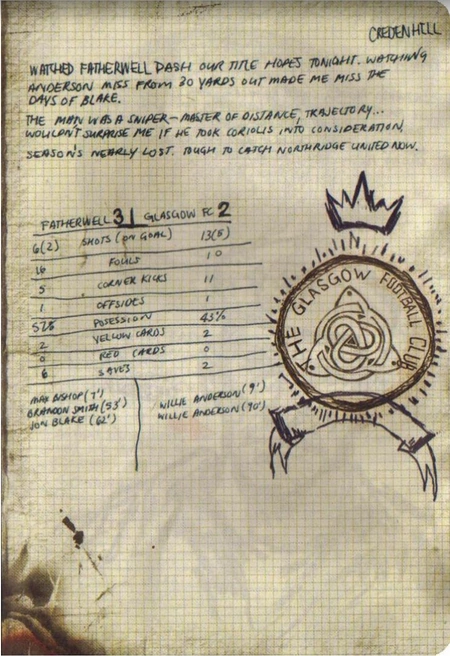 CREDENHILL
WATCHED FATHERWELL DASH OUR TITLE HOPES TONIGHT. WATCHING
ANDERSON MISS FROM 30 YARDS OUT MADE ME MISS THE
DAYS OF BLAKE.
THE MAN WAS A SNIPER - MASTER OF DISTANCE, TRAJECTORY...
WOULDN'T SURPRISE ME IF HE TOOK CORIOLIS INTO CONSIDERATION.
SEASON'S NEARLY LOST. TOUGH TO CATCH NORTHRIDGE UNITED NOW.
FATHERWELL 3 | GLASGOW FC 2
6(2) SHOTS (ON GOAL) 13(5)
16 FOULS 10
5 CORNER KICKS 11
1 OFFSIDES 1
57% POSESSION 43%
2 YELLOW CARDS 2
0 RED CARDS 0
6 SAVES 2
MAX BISHOP (7') WILLIE ANDERSON (9')
BRANDON SMITH (53') WILLIE ANDERSON (90')
JON BLAKE (62')
THE GLASGOW FOOTBALL CLUB